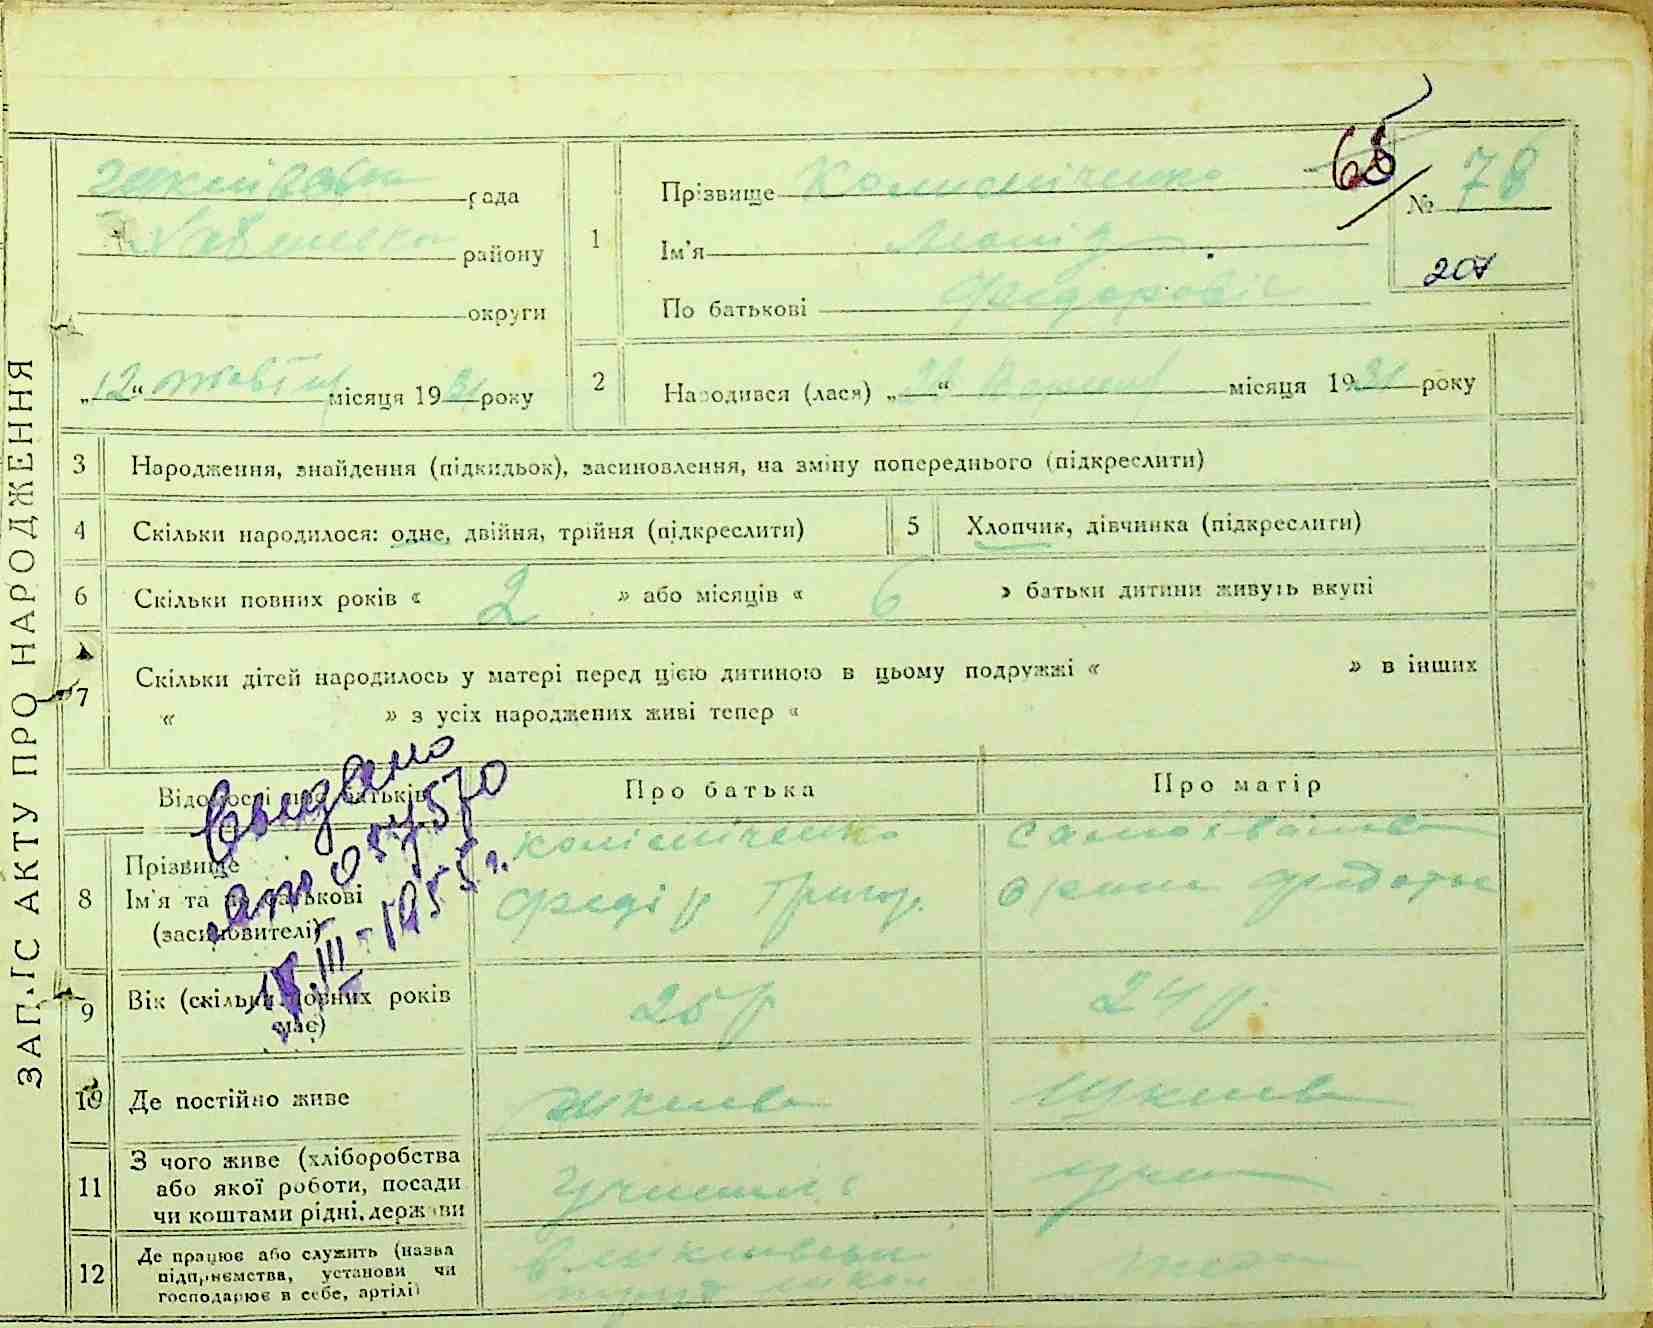 ЗАПИС АКТУ ПРО НАРОДЖЕННЯ
рада
району
округи
„12“ жовтня місяця 1931 року
1
Прізвище Колісніченко
Ім'я Леонід
По батькові Федорович
68
№ 78
207
2 Народився (лася) „ “ місяця 1931 року
3 Народження, знайдення (підкидьок), засиновлення, на зміну попереднього (підкреслити)
4 Скільки народилося: одне, двійня, трійня (підкреслити)
5 Хлопчик, дівчинка (підкреслити)
6 Скільки повних років « 2 » або місяців « 6 » батьки дитини живуть вкупі
7 Скільки дітей народилось у матері перед цією дитиною в цьому подружжі « » в інших
« » з усіх народжених живі тепер «
Відомості про батьків
Про батька
Про матір
8 Прізвище
Ім'я та по батькові
(засиновителі)
Колісніченко
Федір Григор.
Самохвалова
Федотов
9 Вік (скільки повних років
має)
25 р
24 р.
10 Де постійно живе
11 З чого живе (хліборобства
або якої роботи, посади
чи коштами рідні, держави
Учитель
12 Де працює або служить (назва
підприємства, установи чи
господарює в себе, артілі)
Выдано
057570
III-1955г.